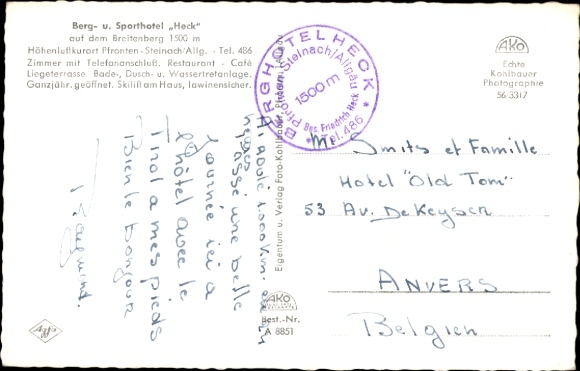 Berg- u. Sporthotel „Heck"
auf dem Breitenberg 1500 m
Höhenluftkurort Pfronten-Steinach/Allg. - Tel. 486
Zimmer mit Telefonanschluß. Restaurant - Café
Liegeterrasse Bade-, Dusch- u. Wassertretanlage.
Ganzjähr. geöffnet. Skilift am Haus, lawinensicher.
BERGHOTEL HECK
Pfronten Steinach/Allgäu
1500 m
Bes. Friedrich Heck
Tel. 486
AKO
Echte
Kohlbauer
Photographie
56-3317
1.000 km. en 24
heures
Passé une belle
journée ici a
l'hôtel avec le
Tirol a mes pieds
Bien le bonjour
Eigentum u. Verlag Foto-Kohlbauer, Pfronten
Mr Smits et Famille
Hotel "Old Tom"
53 Av. De Keyser
ANVERS
Belgien
AKO
Best.-Nr.
A 8851
Agfa